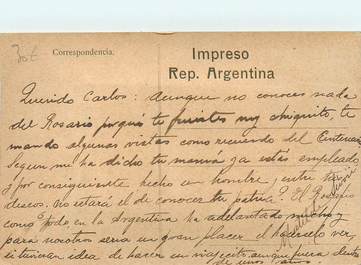 30 €
Correspondencia.
Impreso
Rep. Argentina
Querido Carlos: Aunque no conoces nada
del Rosario porqué te fuistes muy chiquito, te
mando algunas vistas como recuerdo del Centenario
Segun me ha dicho tu mamá ya estás empleado
y por consiguiente hecho un hombre, entre
deseos. No estará el de conocer tu patria? El Rosario
como todo en la Argentina ha adelantado mucho y
para nosotros seria un gran placer el hacerlo ver,
si tuvieran idea de hacer un viajecito, aunque fuera dentro
de unos